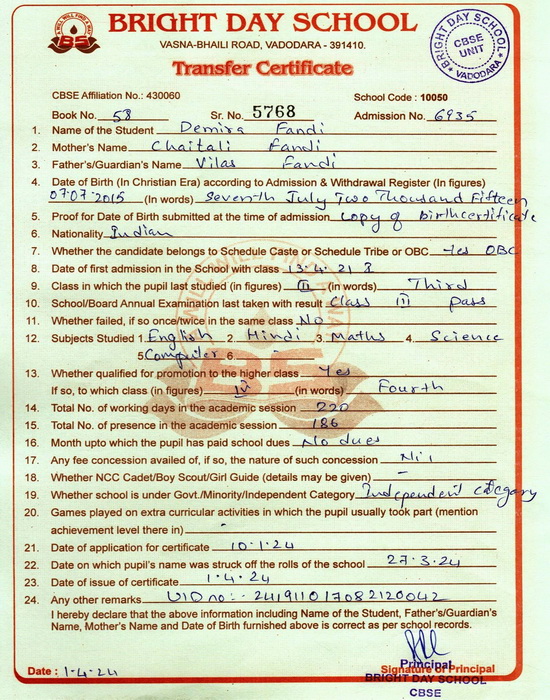 BRIGHT DAY SCHOOL
VASNA-BHAILI ROAD, VADODARA - 391410.
BRIGHT DAY SCHOOL CBSE UNIT VADODARA
Transfer Certificate
CBSE Affiliation No.: 430060 School Code : 10050
Book No. 58 Sr. No. 5768 Admission No. 6935
1. Name of the Student Demira Fandi
2. Mother's Name Chaitali Fandi
3. Father's/Guardian's Name Vilas Fandi
4. Date of Birth (In Christian Era) according to Admission & Withdrawal Register (In figures)
07.07.2015 (In words) Seventh July Two Thousand Fifteen
5. Proof for Date of Birth submitted at the time of admission copy of birthcertificate
6. Nationality Indian
7. Whether the candidate belongs to Schedule Caste or Schedule Tribe or OBC Yes OBC
8. Date of first admission in the School with class 13.4.21
9. Class in which the pupil last studied (in figures) (in words) Third
10. School/Board Annual Examination last taken with result Class III pass
11. Whether failed, if so once/twice in the same class No
12. Subjects Studied 1. English 2. Hindi 3. Maths 4. Science
5. Computer 6.
13. Whether qualified for promotion to the higher class Yes
If so, to which class (in figures) IV (in words) Fourth
14. Total No. of working days in the academic session 220
15. Total No. of presence in the academic session 186
16. Month upto which the pupil has paid school dues No dues
17. Any fee concession availed of, if so, the nature of such concession Nil
18. Whether NCC Cadet/Boy Scout/Girl Guide (details may be given) -
19. Whether school is under Govt./Minority/Independent Category Independent category
20. Games played on extra curricular activities in which the pupil usually took part (mention
achievement level there in) -
21. Date of application for certificate 10.1.24
22. Date on which pupil's name was struck off the rolls of the school 27.3.24
23. Date of issue of certificate 1.4.24
24. Any other remarks UID no:- 241911017082120042
I hereby declare that the above information including Name of the Student, Father's/Guardian's
Name, Mother's Name and Date of Birth furnished above is correct as per school records.
Date : 1.4.24 Signature of Principal
Principal
BRIGHT DAY SCHOOL
CBSE